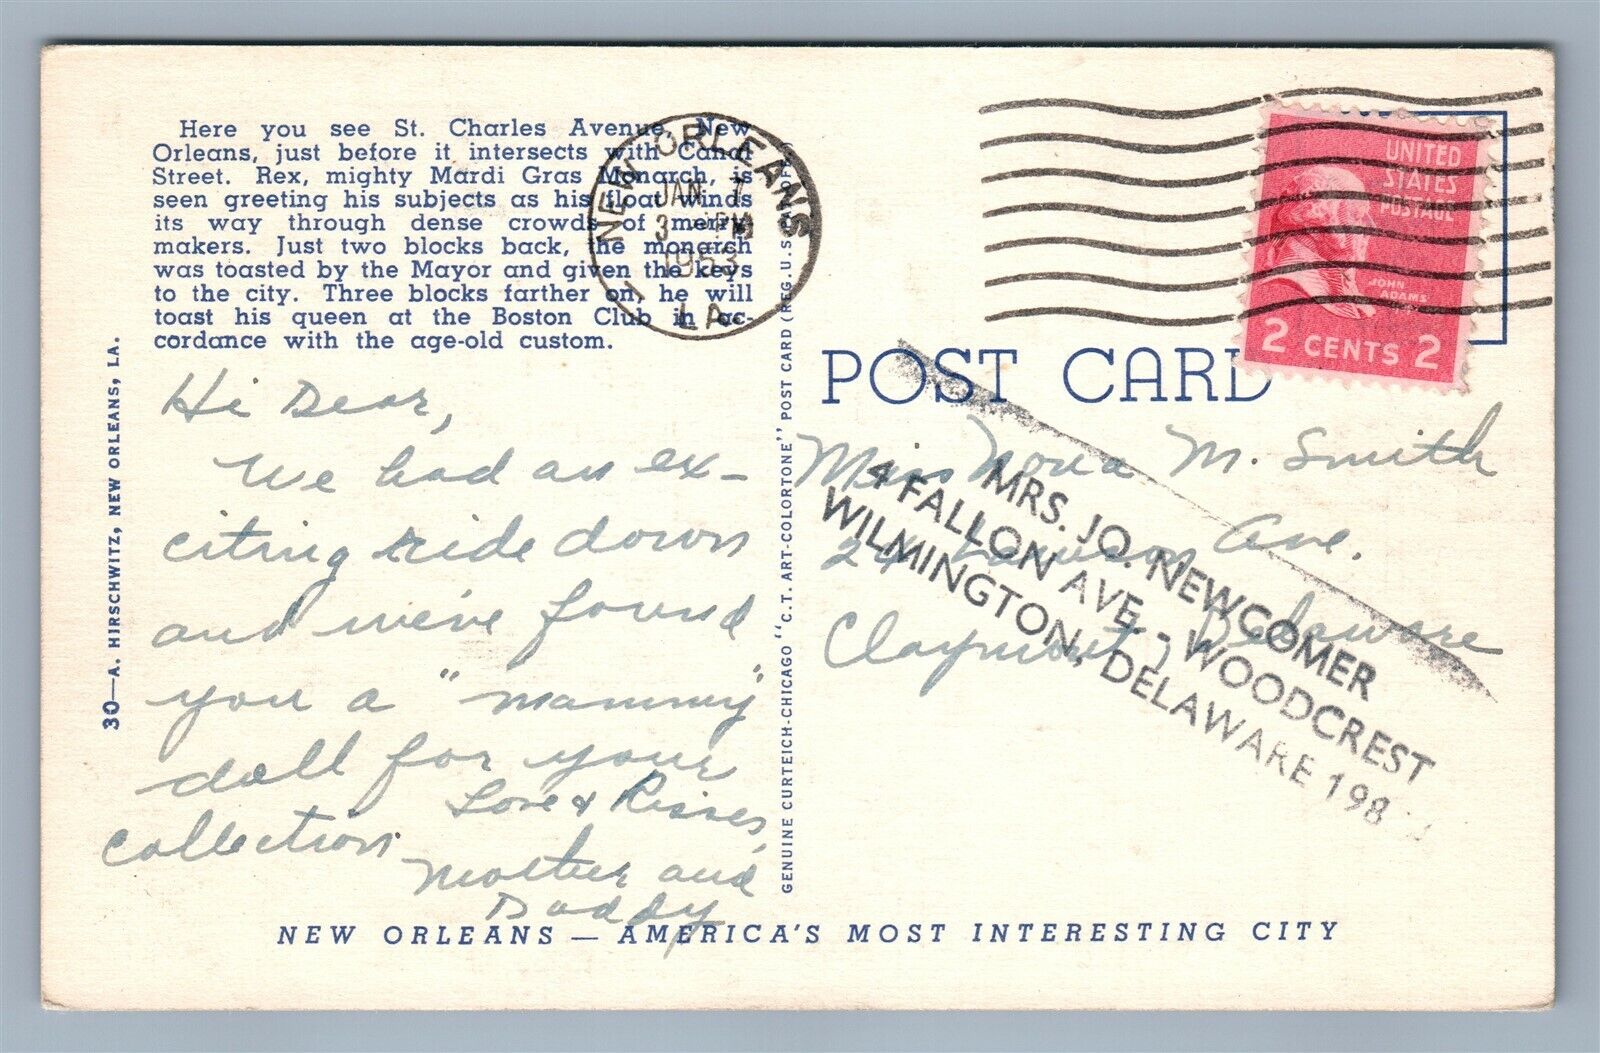 Here you see St. Charles Avenue, New
Orleans, just before it intersects with Canal
Street. Rex, mighty Mardi Gras Monarch, is
seen greeting his subjects as his float winds
its way through dense crowds of merry
makers. Just two blocks back, the monarch
was toasted by the Mayor and given the keys
to the city. Three blocks farther on, he will
toast his queen at the Boston Club in ac-
cordance with the age-old custom.
Hi Dear,
We had an ex-
citing ride down
and we've found
you a "mammy"
doll for your
collection
Love & Kisses,
Mother and
Daddy
30—A. HIRSCHWITZ, NEW ORLEANS, LA.
NEW ORLEANS
JAN 7
3 PM
1953
1
LA.
GENUINE CURTEICH-CHICAGO "C.T. ART-COLORTONE" POST CARD (REG. U.S. PAT. OFF.)
UNITED
STATES
POSTAGE
JOHN
ADAMS
2 CENTS 2
POST CARD
Miss Nova M. Smith
24 Lawson Ave.
Claymont, Delaware
MRS. JO. NEWCOMER
4 FALLON AVE - WOODCREST
WILMINGTON, DELAWARE 198
NEW ORLEANS — AMERICA'S MOST INTERESTING CITY